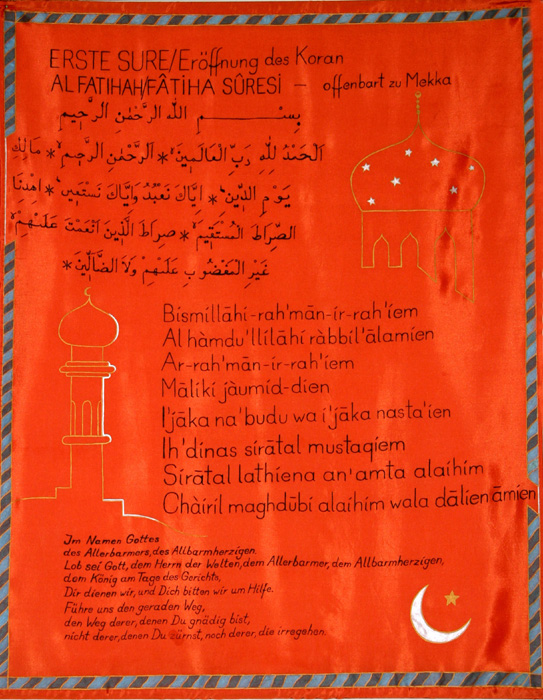 ERSTE SURE/Eröffnung des Koran
AL FATIHAH/FÂTİHA SÛRESİ – offenbart zu Mekka
بِسْمِ اللّٰهِ الرَّحْمٰنِ الرَّحِيمِ
اَلْحَمْدُ لِلّٰهِ رَبِّ الْعَالَمِينَ * اَلرَّحْمٰنِ الرَّحِيمِ * مَالِكِ
يَوْمِ الدِّينِ * اِيَّاكَ نَعْبُدُ وَاِيَّاكَ نَسْتَعِينُ * اِهْدِنَا
الصِّرَاطَ الْمُسْتَقِيمَ * صِرَاطَ الَّذِينَ اَنْعَمْتَ عَلَيْهِمْ
غَيْرِ الْمَغْضُوبِ عَلَيْهِمْ وَلَا الضَّالِّينَ *
Bismillāhi-rah'mān-ir-rah'iem
Al hàmdu'llilāhi ràbbil'ālamien
Ar-rah'mān-ir-rah'iem
Māliki jàumid-dien
I'jāka na'budu wa i'jāka nasta'ien
Ih'dinas sirātal mustaqiem
Sirātal lathiena an'amta alaihim
Chàiril maghdūbi alaihim wala dālien āmien
Im Namen Gottes
des Allerbarmers, des Allbarmherzigen.
Lob sei Gott, dem Herrn der Welten, dem Allerbarmer, dem Allbarmherzigen,
dem König am Tage des Gerichts,
Dir dienen wir, und Dich bitten wir um Hilfe.
Führe uns den geraden Weg,
den Weg derer, denen Du gnädig bist,
nicht derer, denen Du zürnst, noch derer, die irregehen.